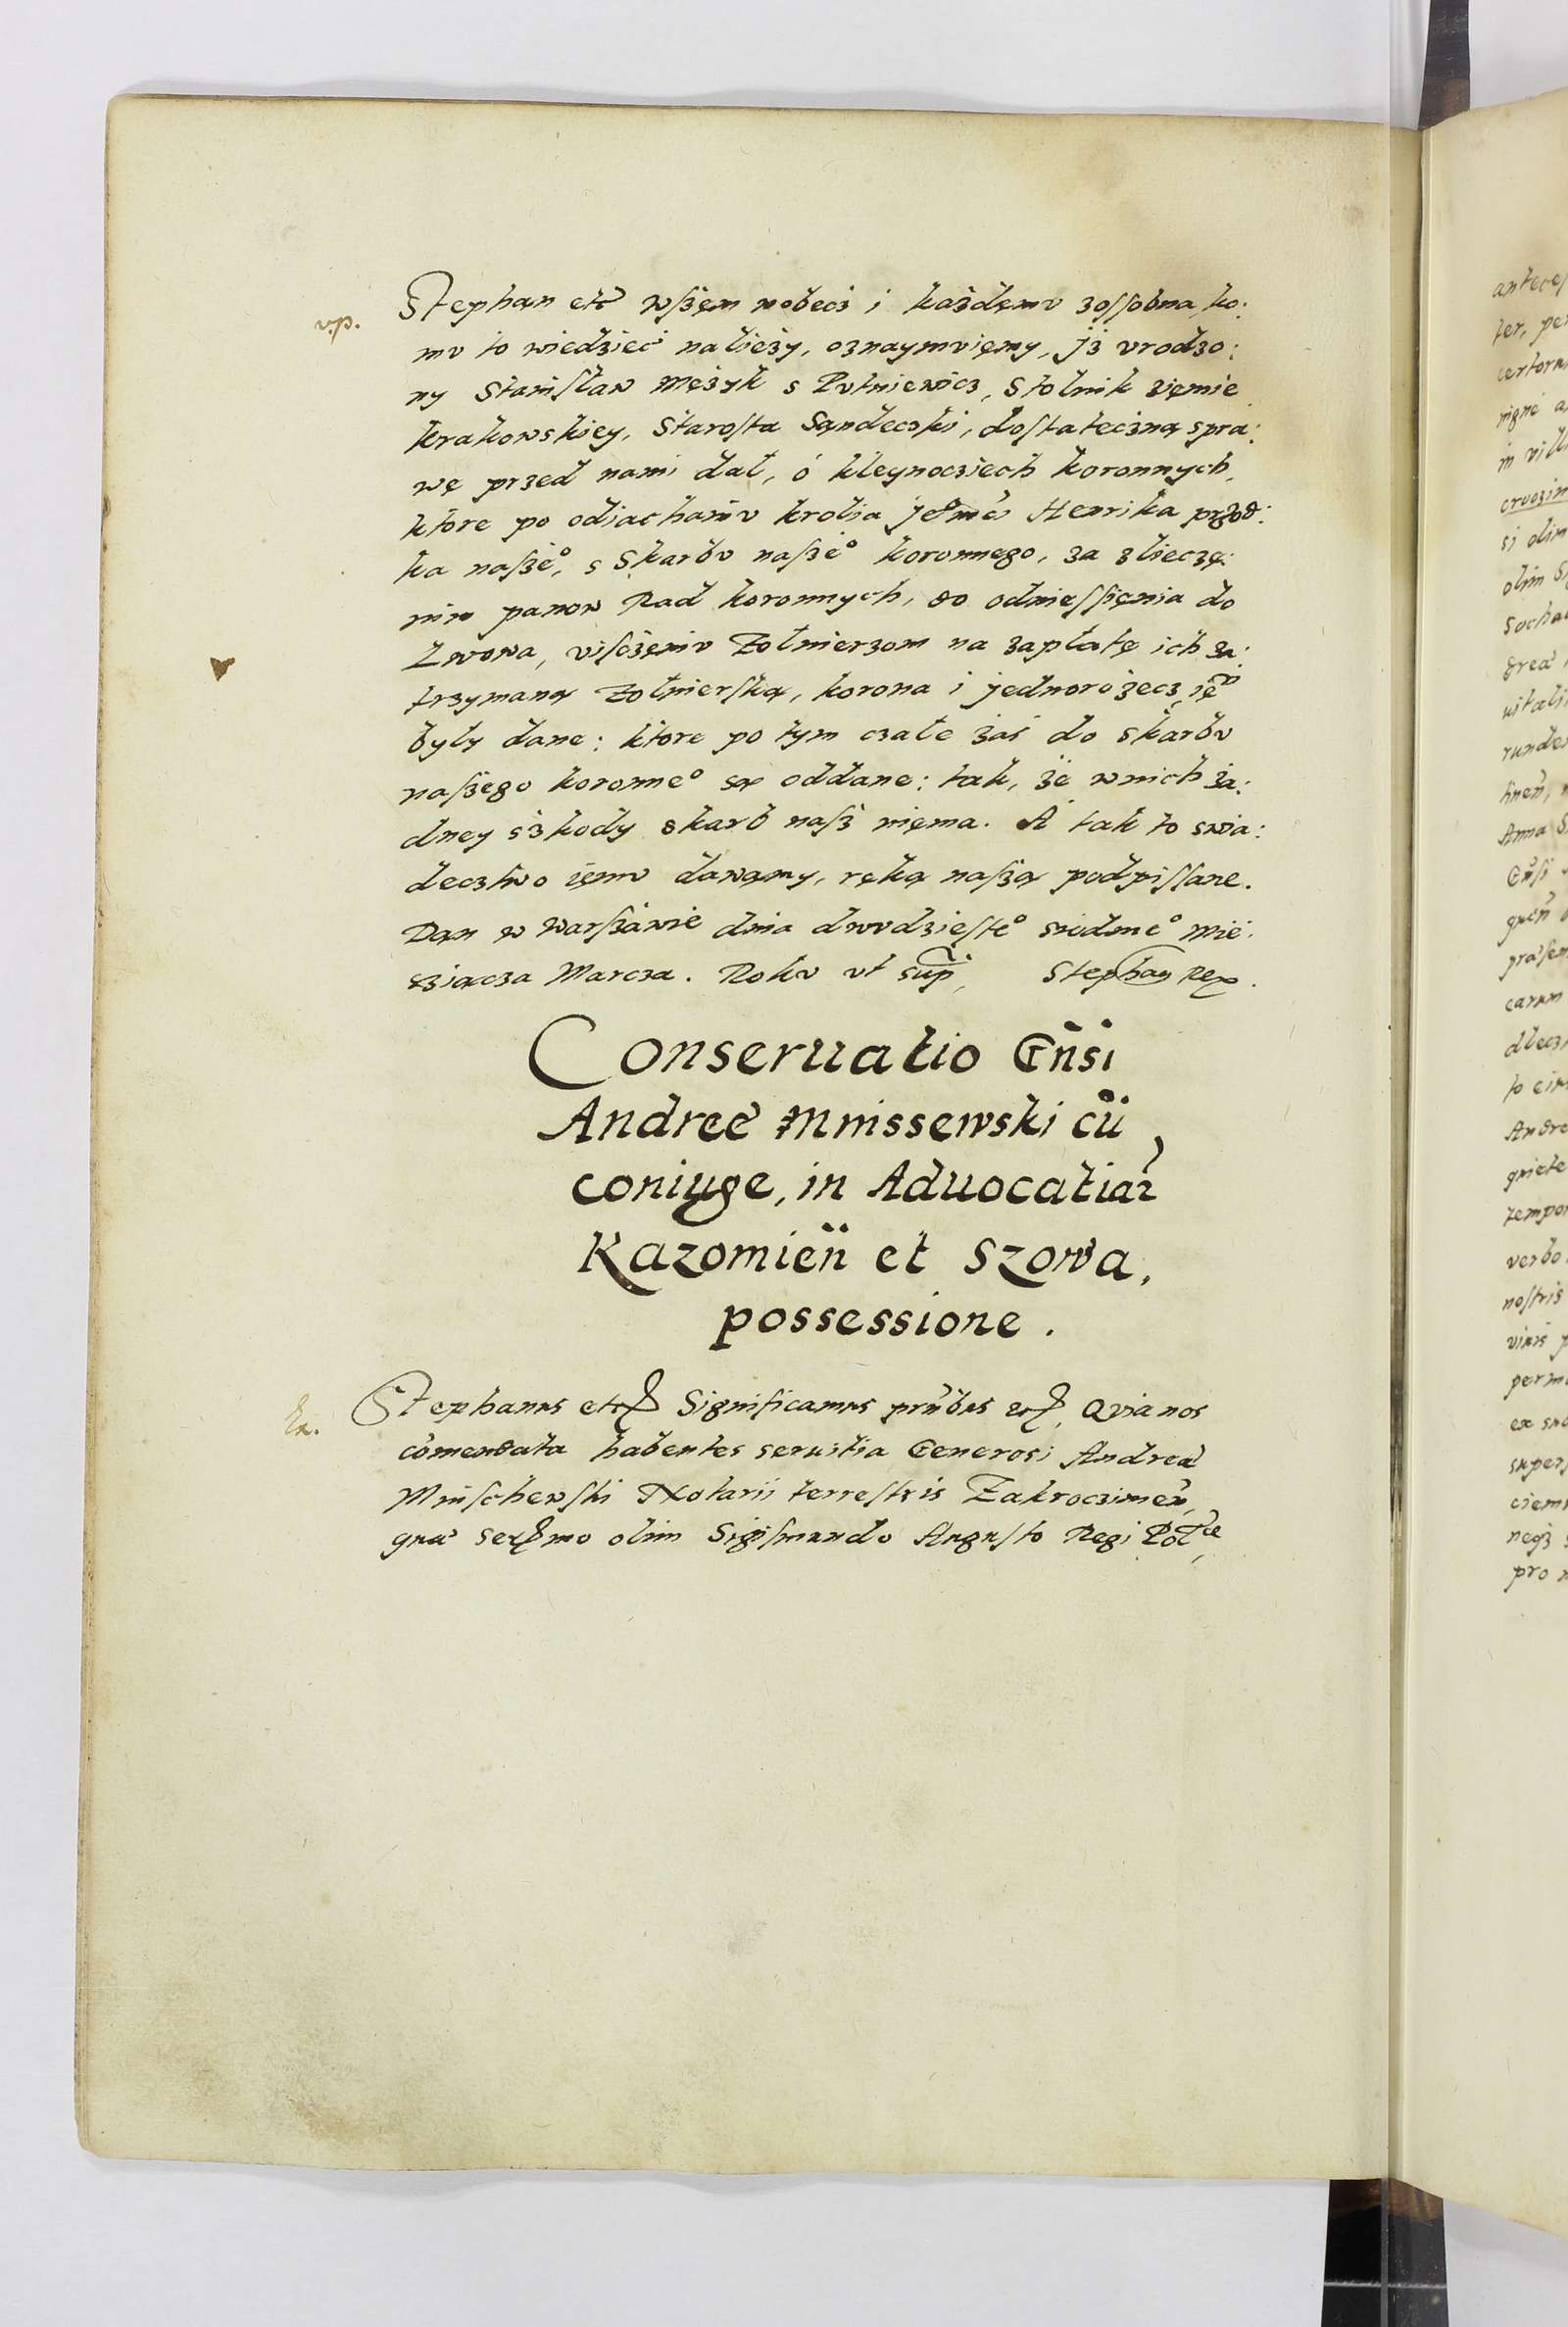 v.p.
Stephan etc wszẹm wobecz i każdẹmv zossobna, ko:
mv to wiedzieć należy, oznaymviẹmy, jż vrodzo:
ny Stanisław Mężyk s Putniewicz, Stolnik ziẹmie
krakowskiey, Starosta Sądecski, dostateczną spra:
wę przed nami dał, o kleynocziech koronnych,
ktore po odiachaniv krolia je°mći Henrika przod:
ka nasze°, s Skarbv nasze° koronnego, za zleczę:
nim panow Rad koronnych, do odniessięnia do
Lwowa, visczẹniv Zołnierzom na zapłatę ich za:
trzymaną Zołnierską, korona i jednorożecz, ię
były dane: ktore po tym czałe zaś do skarbv
naszego koronne° są oddane: tak, że w nich ża:
dney szkody skarb nasz nięma. A tak to swia:
decztwo iẹmv dawamy, ręką naszą podpissane.
Dan w Warszawie dnia dwvdzieste° siodme° mie:
sziącza Marcza. Rokv vt sup, Stephan Rex.
Conseruatio Gnsi
Andree Mnissewski cu
coniuge, in Aduocatiar
Kazomien et Szowa,
possessione.
Ex. Stephanus etc Significamus prnbus etc, Quia nos
comendata habentes seruitia Generosi Andreae
Mnischewski Notarii terrestris Zakroczimen,
quae serᵐᵒ olim Sigismundo Augusto Regi Polᶜᵉ,
anteces
ter, per
certorum
in vill
si olim
olim Si
Socha
runde
Anna S
carum
to eiu
Andre
quiete
tempor
verbo
nostris
super
pro